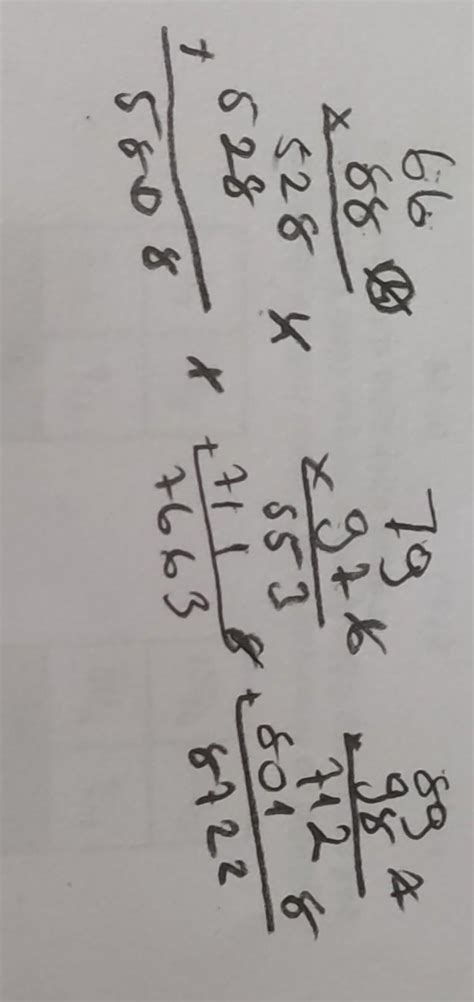 66
× 88
528
528
+
5808
79
× 97
553
711
+
7663
89
× 98
712
801
+
8722